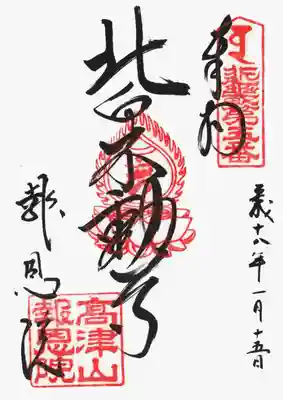 近畿第五番
奉拝
平成十八年一月十五日
北向不動尊
報恩院
高津山
報恩院